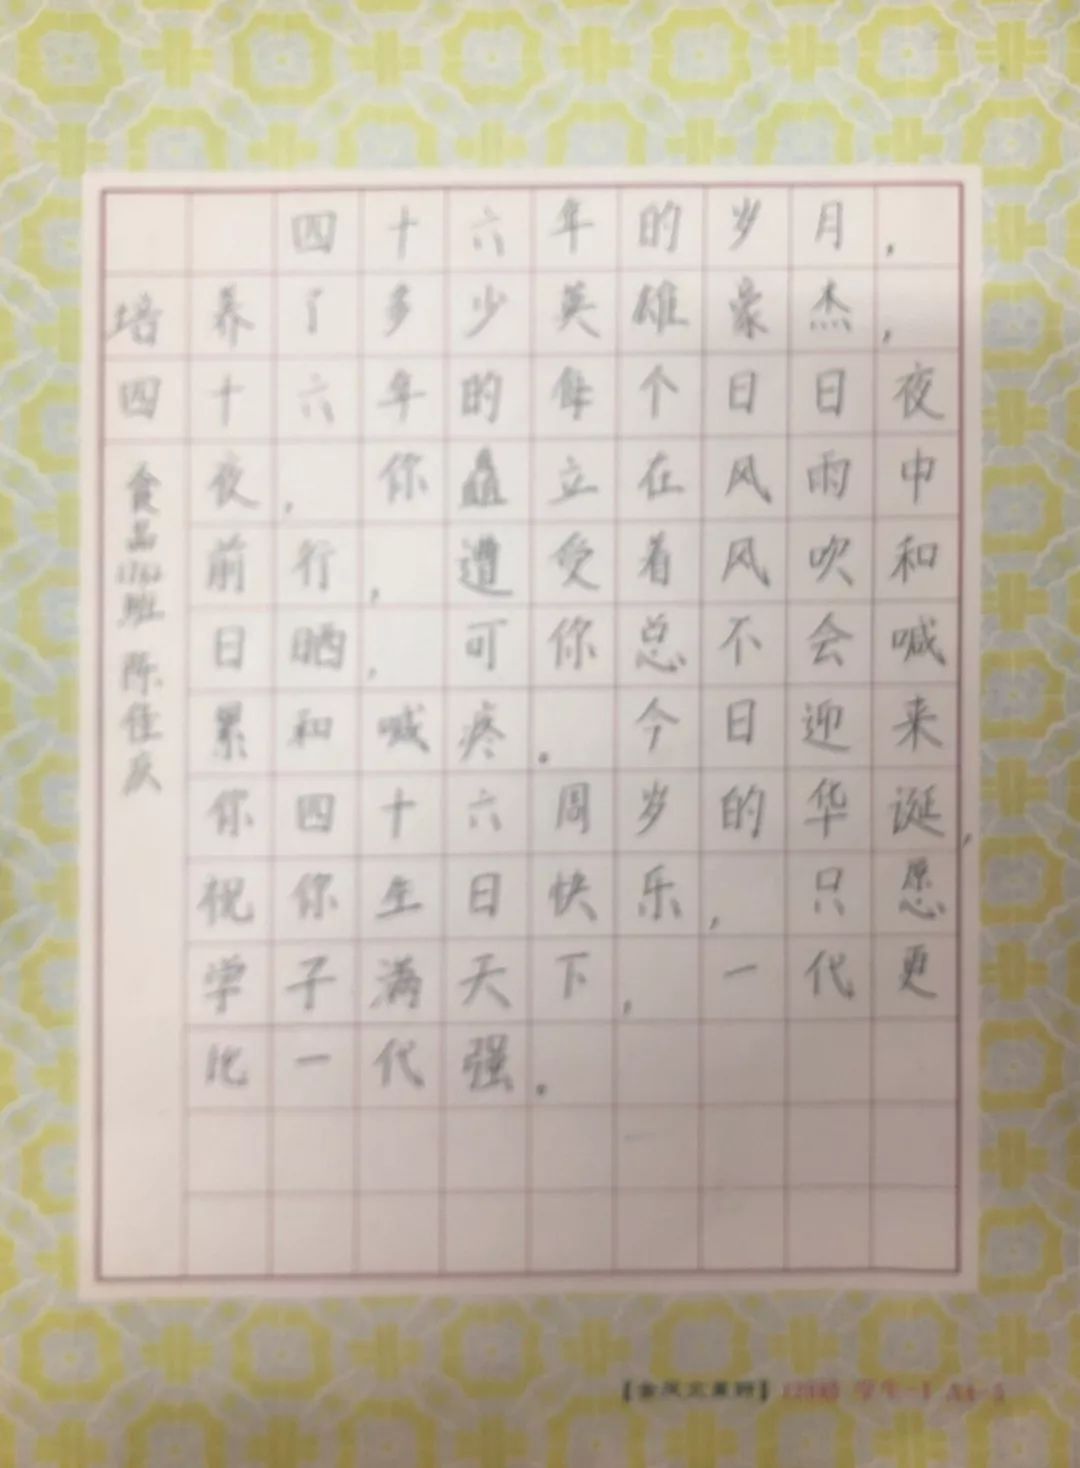 四十六年的岁月，
培养了多少英雄豪杰，
四十六年的每个日日夜
夜，你矗立在风雨中
前行，遭受着风吹和
日晒，可你总不会喊
累和喊疼。今日迎来
你四十六周岁的华诞，
祝你生日快乐，只愿
学子满天下，一代更
比一代强。
食品1762班 陈佳
学生-1 A4-5